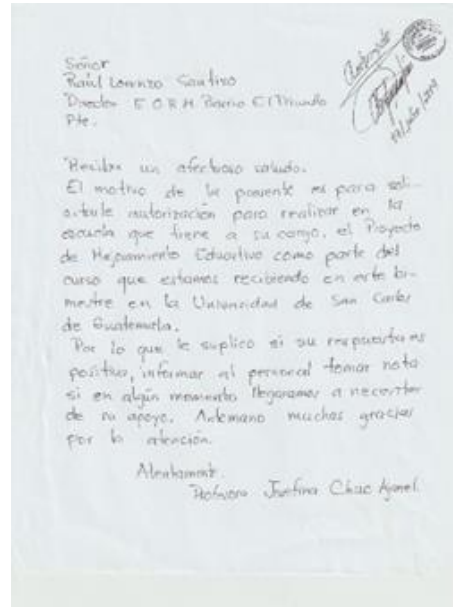 Señor
Raúl Lorenzo
Director E O R M Barrio El Triunfo
Pte.
Autorizado
Reciba un afectuoso saludo.
El motivo de la presente es para soli-
citarle autorización para realizar en la
escuela que tiene a su cargo, el Proyecto
de Mejoramiento Educativo como parte del
curso que estamos recibiendo en este bi-
mestre en la Universidad de San Carlos
de Guatemala.
Por lo que le suplico si su respuesta es
positiva, informar al personal tomar nota
si en algún momento llegaramos a necesitar
de su apoyo. Antemano muchas gracias
por la atención.
Atentamente.
Profesora Justina Chac